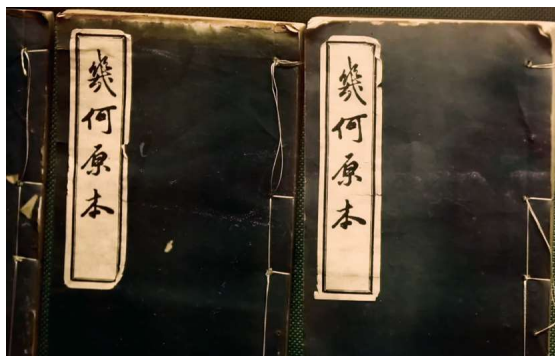 幾何原本
幾何原本